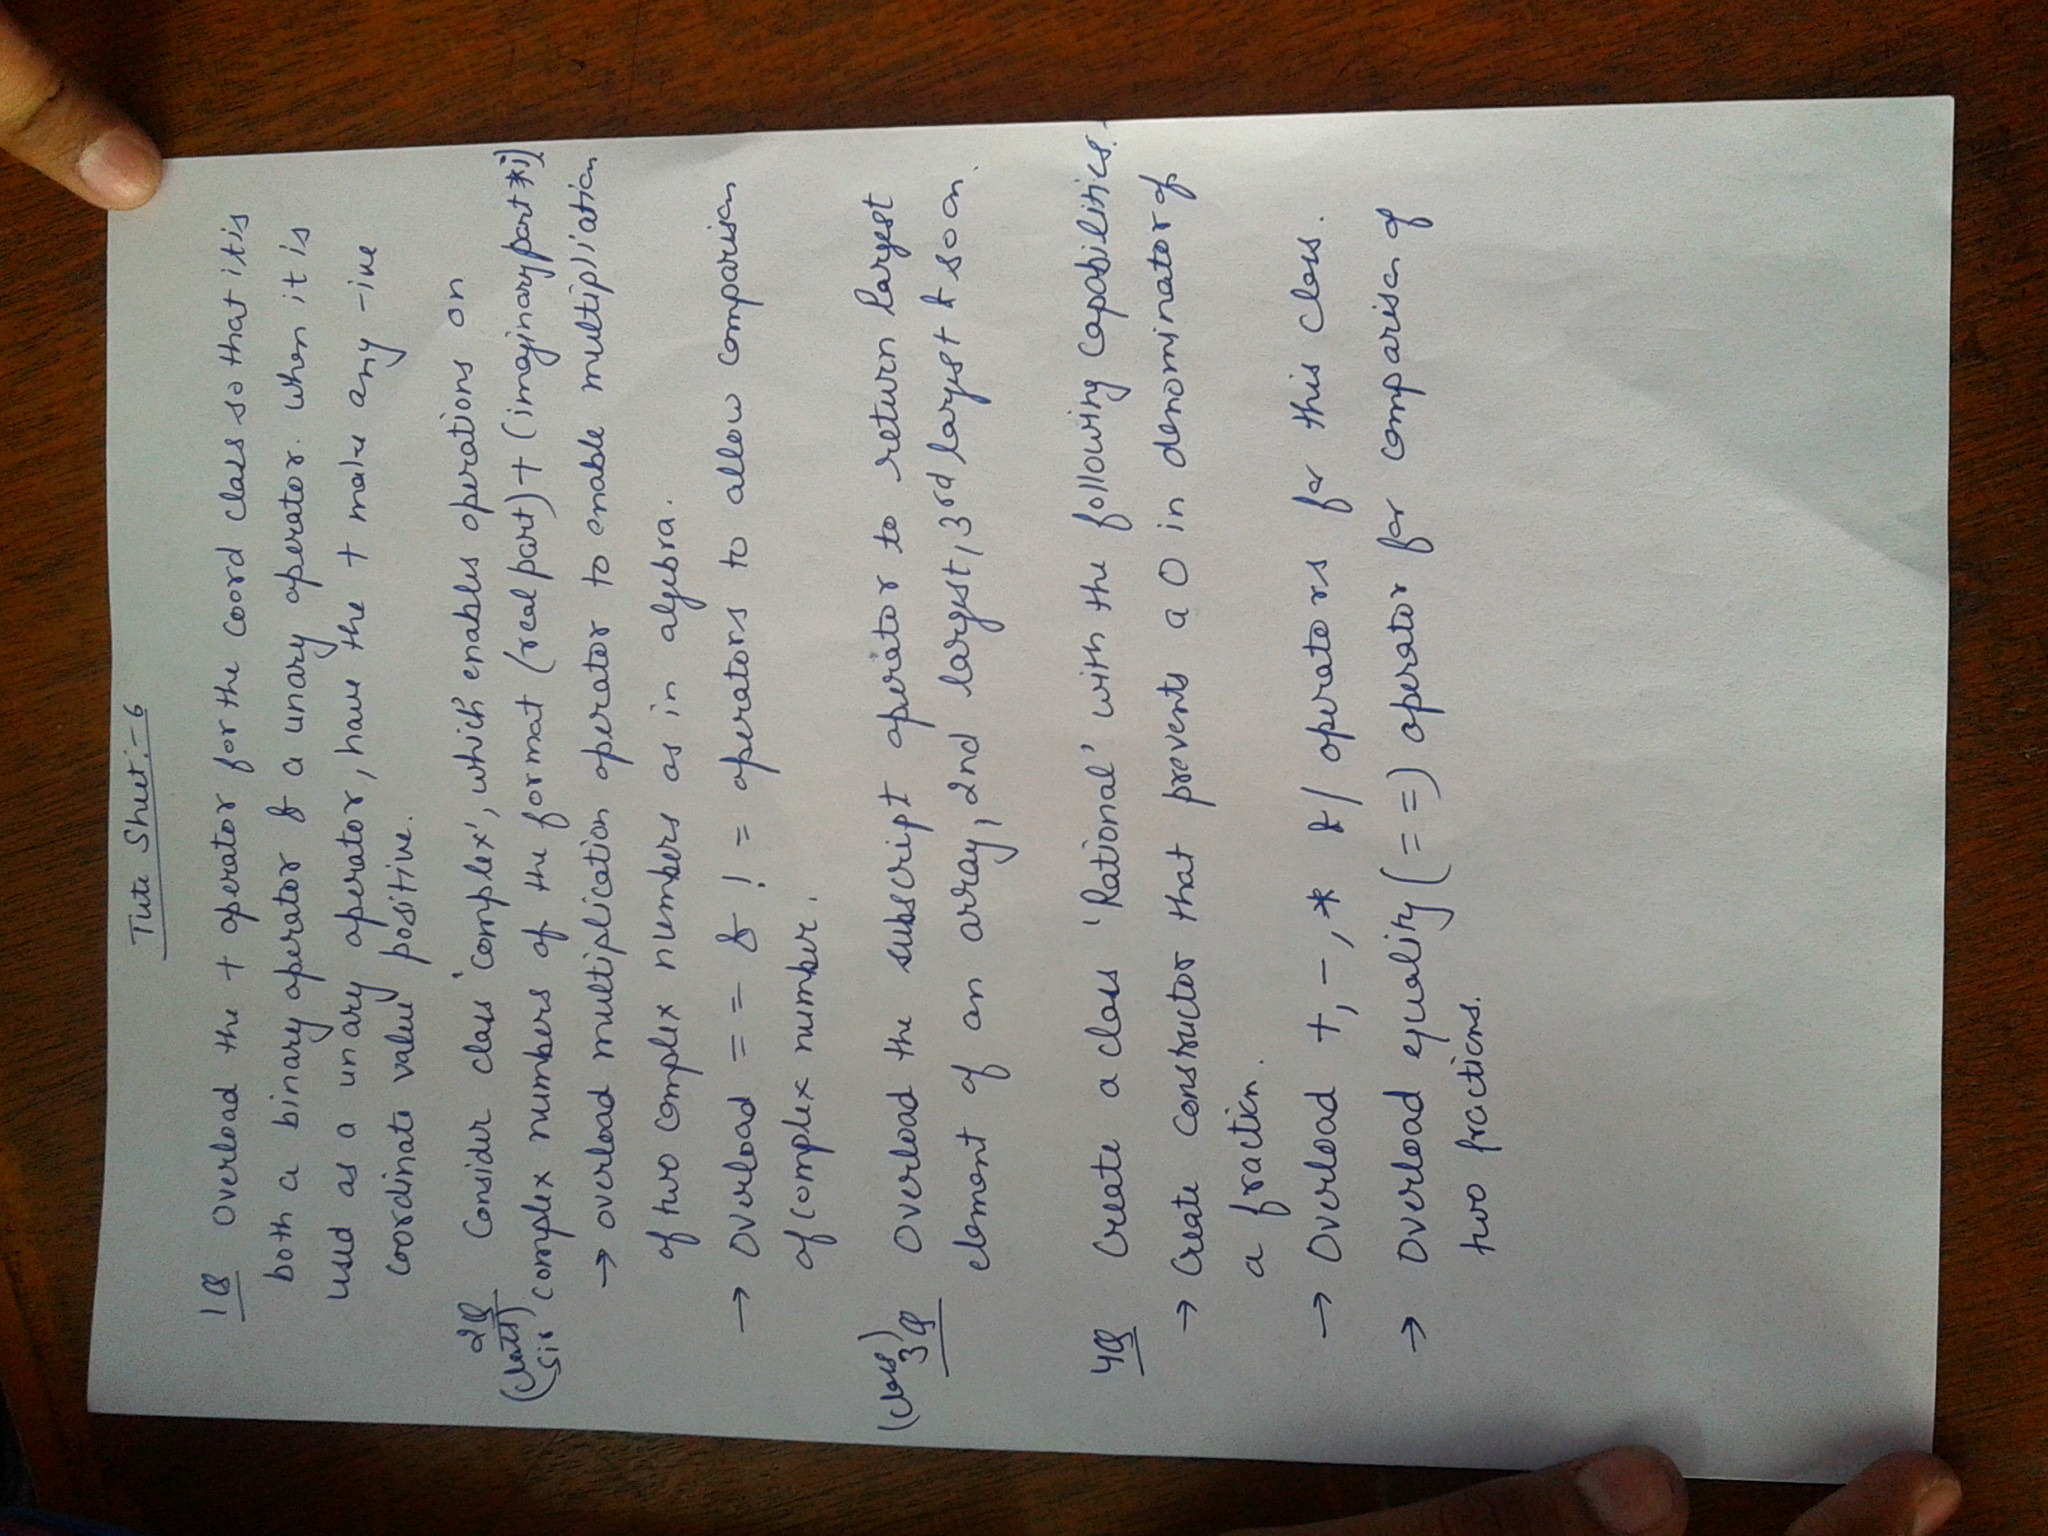 Tute Sheet:-6
1Q Overload the + operator for the coord class so that it is
both a binary operator & a unary operator. When it is
used as a unary operator, have the + make any -ive
coordinate value positive.
2Q Consider class 'complex', which enables operations on
(class)
sir complex numbers of the format (real part) + (imaginary part *i)
→ overload multiplication operator to enable multipliation
of two complex numbers as in algebra.
→ Overload = = & ! = operators to allow comparison
of complex number.
(class)
3Q Overload the subscript operator to return largest
element of an array, 2nd largest, 3rd largest & so on.
4Q Create a class 'Rational' with the following capabilities.
→ Create constructor that prevents a 0 in denominator of
a fraction.
→ Overload +, -, * & / operators for this class.
→ Overload equality (= =) operator for comparison of
two fractions.